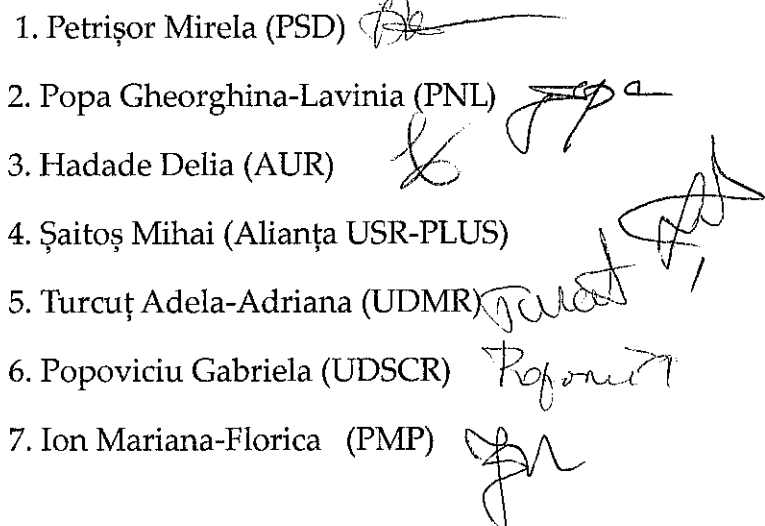 1. Petrișor Mirela (PSD)
2. Popa Gheorghina-Lavinia (PNL)
3. Hadade Delia (AUR)
4. Șaitoș Mihai (Alianța USR-PLUS)
5. Turcuț Adela-Adriana (UDMR)
6. Popoviciu Gabriela (UDSCR)
7. Ion Mariana-Florica (PMP)